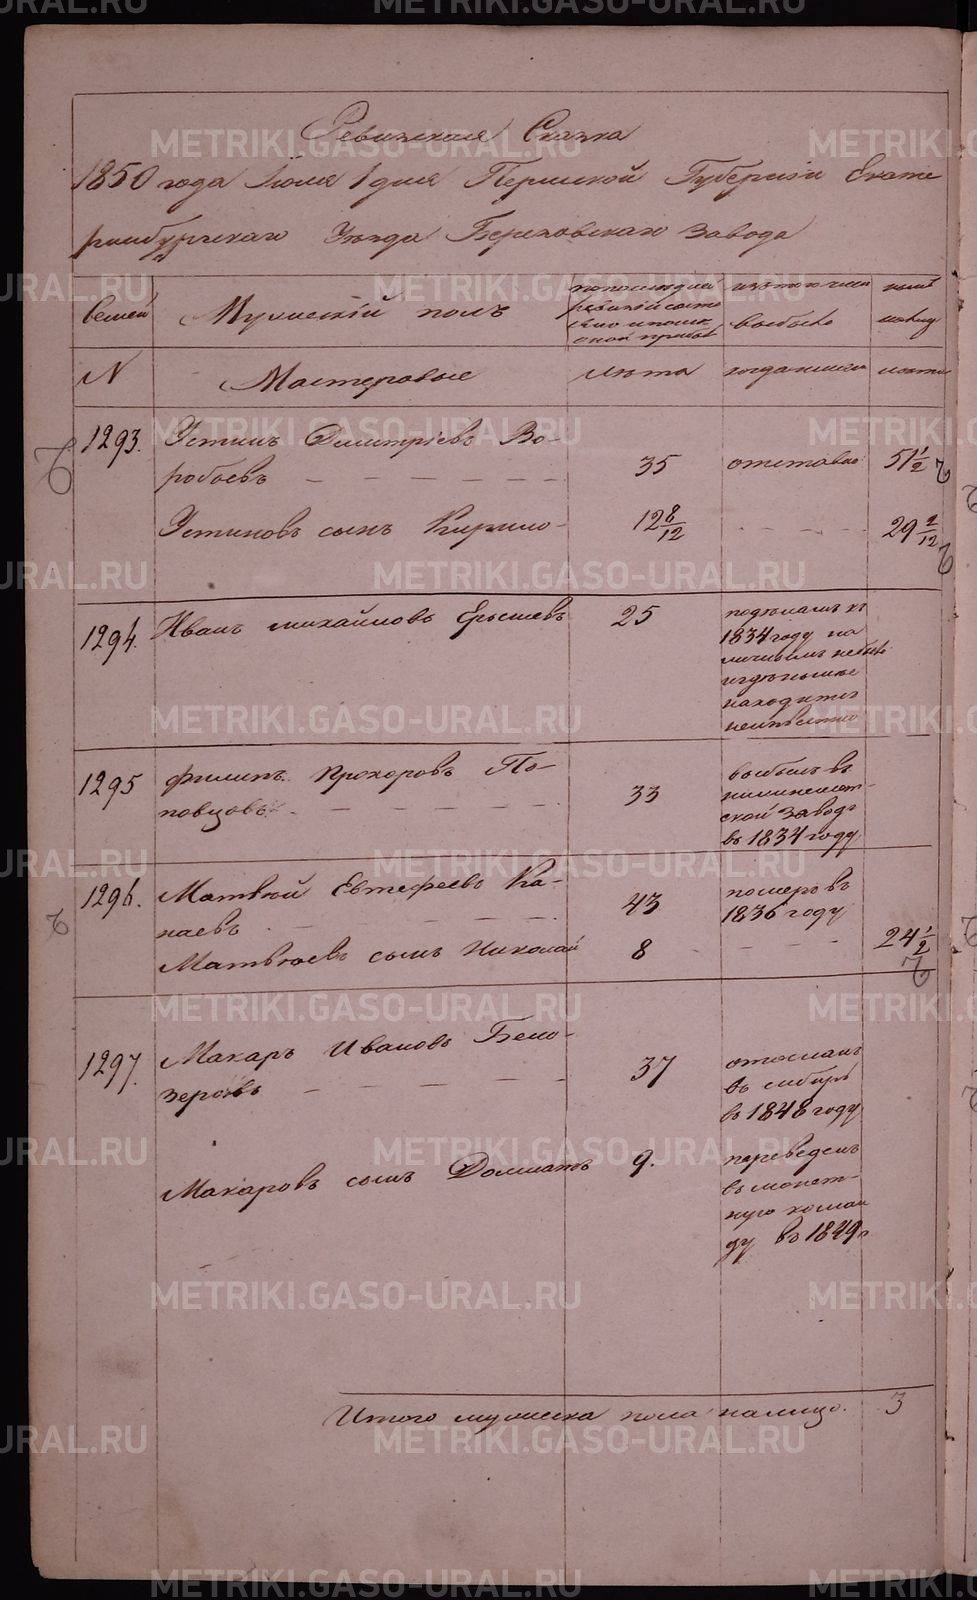 Ревизская Сказка
1850 года Iюля 1 дня Пермской Губернiи Екате
ринбургскаго Уезда Березовскаго Завода
Семей Мужескiй полъ по последней из того числа ныне
ревизiи состо выбыло на лицо
яло и после
оной прибыло
N Мастеровые Лета когда именно лета
1293. Устинъ Дмитрiевъ Во-
робьевъ 35 отставно 51 1/2
Устиновъ сынъ Кирило 12 8/12 29 2/12
1294. Иванъ Михайловъ Ерышевъ 25 подъ къ
1834 году на
личнымъ небыло
где ныне
находится
неизвестно
1295 Филипъ Прохоровъ По-
повцовъ 33 выбылъ въ
ской заводъ
въ 1834 году
1296. Матвей Евтефеевъ Ка-
наевъ 43 померъ въ
1836 году
Матвеевъ сынъ Николай 8 24 1/2
1297. Макаръ Ивановъ Бело-
зеровъ 37 отосланъ
въ сибирь
въ 1848 году
Макаровъ сынъ Долматъ 9. переведенъ
въ монет-
ную коман
ду въ 1849
Итого мужеска пола налицо. 3
METRIKI.GASO-URAL.RU